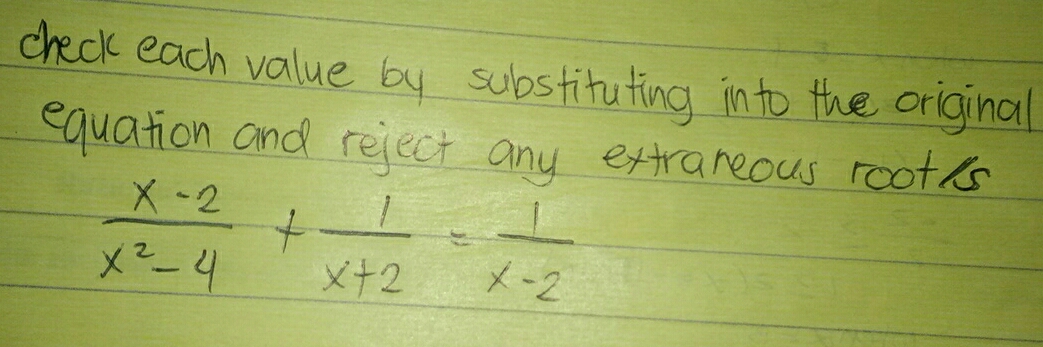 check each value by substituting into the original
equation and reject any extraneous root/s
x-2 / x²-4 + 1 / x+2 = 1 / x-2